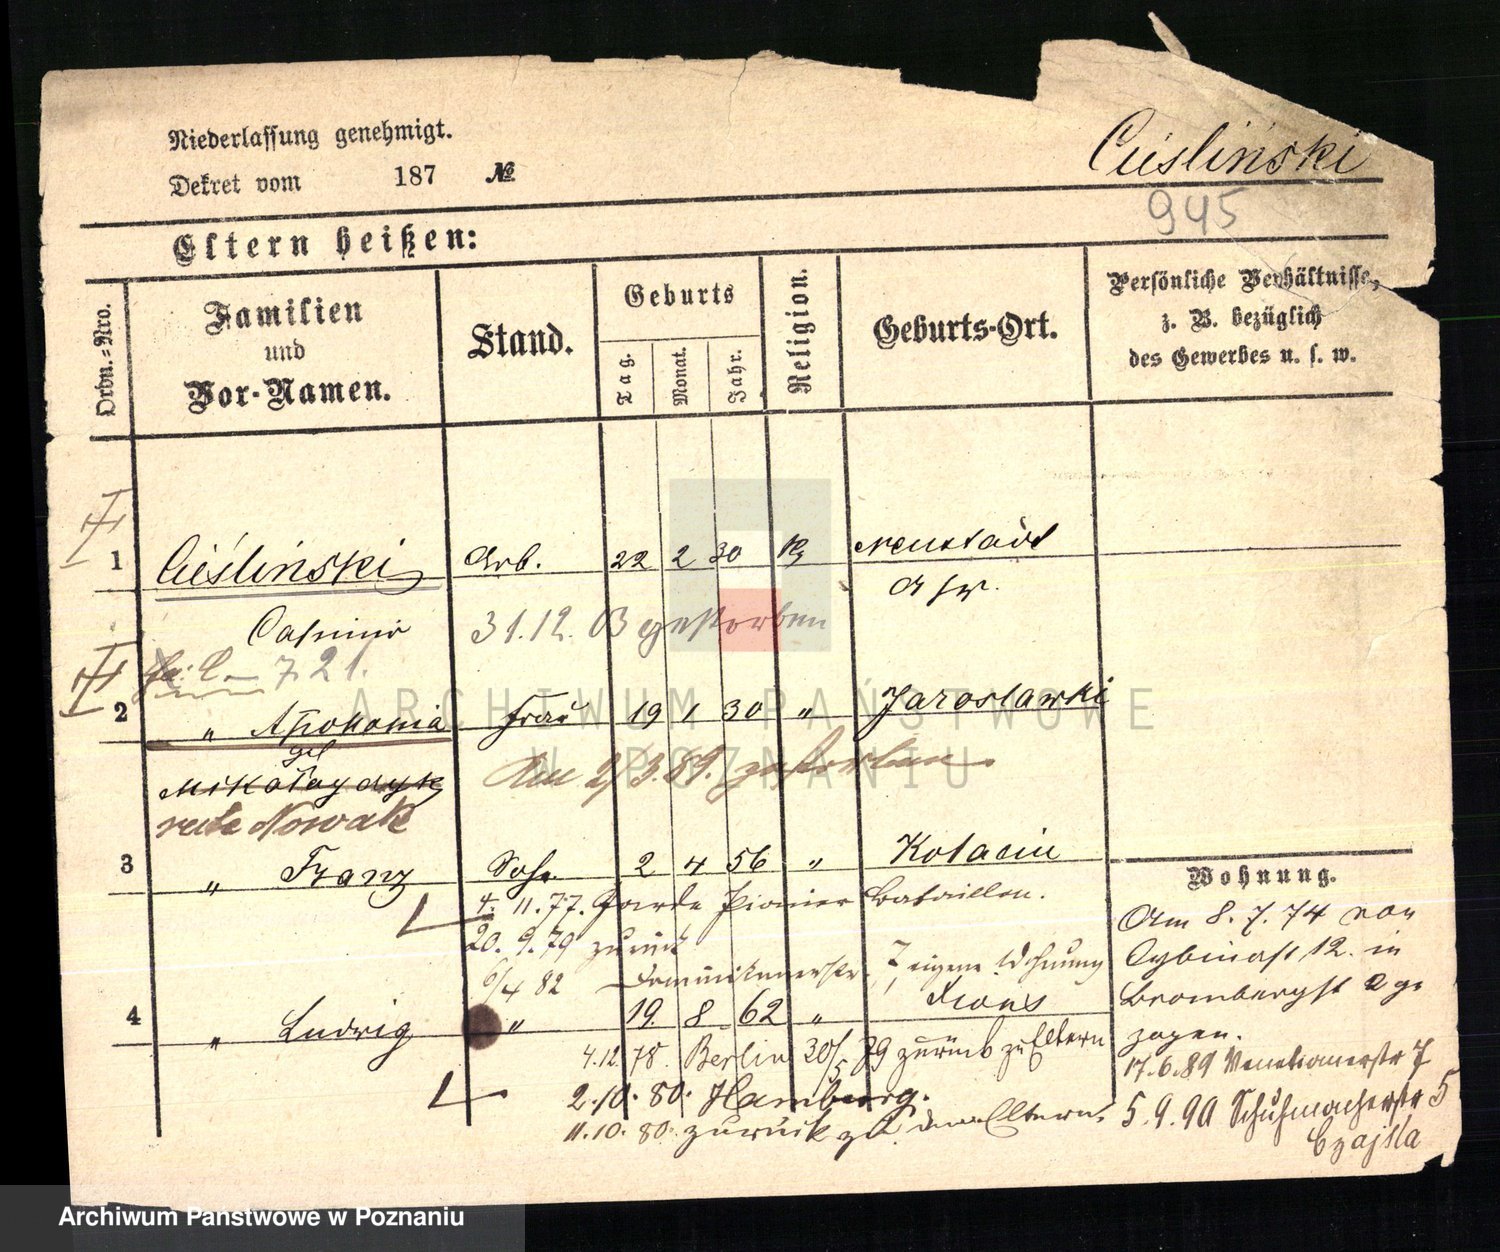 Niederlassung genehmigt.
Dekret vom 187 №
Cieśliński
945
Eltern heißen:
Ordn.-Nro.
Familien und Vor-Namen.
Stand.
Geburts
Tag.
Monat.
Jahr.
Religion.
Geburts-Ort.
Persönliche Verhältnisse,
z. B. bezüglich
des Gewerbes u. s. w.
1 Cieśliński Arb. 22 2 30 Neustadt
Casimir 31.12. gestorben
721.
2 " Apolonia Frau 19 1 30 " Jaroslawki
geb
Mikołayczyk Am 2/3.89. gestorben
recte Nowak
3 " Franz Sohn 2 4 56 " Kotacin
4. 11. 77. Garde Pionier Bataillon.
20. 9. 79 zurück
6/4 82 Dominikanerstr. 7 eigene Wohnung
4 " Ludwig " 19. 8 62 " Xions
4.12. 78. Berlin 30/5 79 zurück zu Eltern
2.10. 80. Hamburg.
11.10. 80. zurück zu den Eltern.
Wohnung.
Am 8. 7. 74 von
12. in
Brombergst 2 ge
zogen.
17.6.89 Venetianerstr 7
5.9.90 Schuhmacherstr 5
Czajka
ARCHIWUM PAŃSTWOWE
W POZNANIU
Archiwum Państwowe w Poznaniu